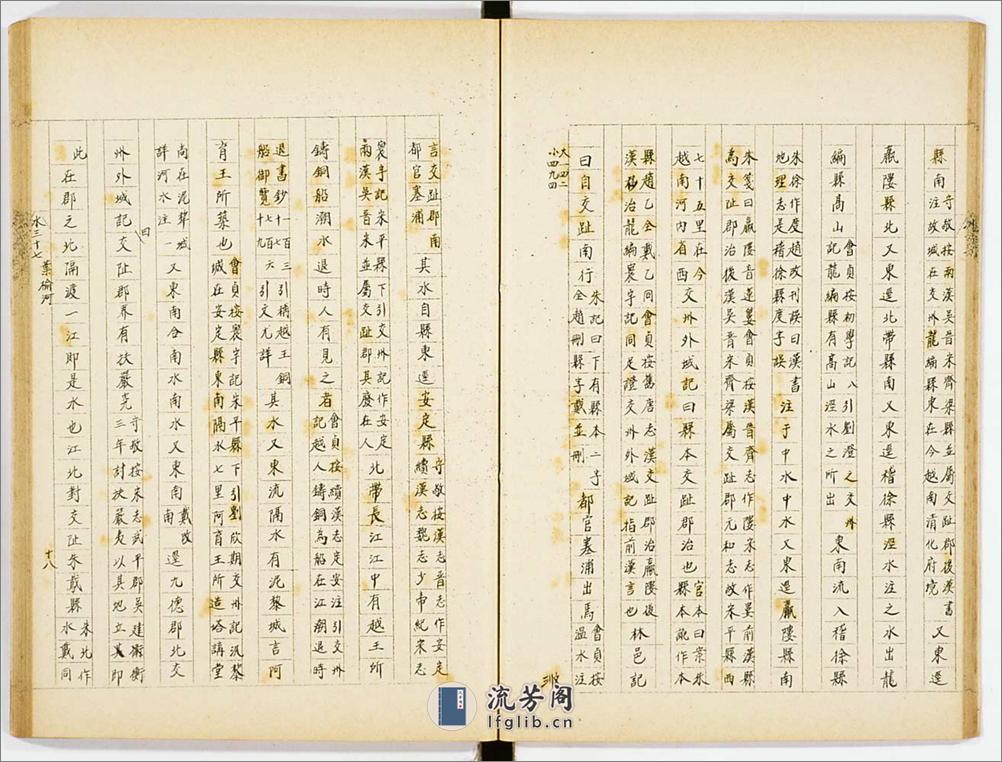 縣南守敬按兩漢吳晉宋齊梁縣並屬交趾郡後漢書
注故城在交州龍編縣東在今越南清化府境又東逕
羸𨻻縣北又東逕北帶縣南又東逕稽徐縣涇水注之水出龍
編縣高山會貞按初學記八引劉澄之交州
記龍編縣有高山涇水之所出東南流入稽徐縣
朱徐作度趙改刊誤曰漢書
地理志是稽徐縣度字誤注于中水中水又東逕羸𨻻縣南
朱箋曰羸𨻻音蓮蔞會貞按漢晉齊志作𨻻宋志作婁前漢縣
為交趾郡治後漢吳晉宋齊梁屬交趾郡元和志故宋平縣西
七十五里在今
越南河內省西交州外域記曰縣本交趾郡治也官本曰案朱
縣本訛作本
縣趙乙全戴乙同會貞按舊唐志漢交趾郡治羸𨻻後
漢移治龍編寰宇記同足證交州外域記指前漢言也林邑記
曰自交趾南行朱記曰下有縣本二字
全趙刪縣字戴並刪都官塞浦出馬會貞按
溫水注
大四二
小四九四
言交趾郡南
都官塞浦其水自縣東逕安定縣守敬按漢志晉志作安定
續漢志魏志少帝紀宋志
寰宇記宋平縣下引交州記作安定
兩漢吳晉宋並屬交趾郡其廢在人北帶長江江中有越王所
鑄銅船潮水退時人有見之者會貞按續漢志定安注引交州
記越人鑄銅為船在江潮退時
退書鈔一百三引構越王銅
船御覽七百六十九引文尤詳其水又東流隔水有泥黎城言阿
育王所築也會貞按寰宇記朱平縣下引劉欣期交州記汎黎
城在安定縣東南隔水七里阿育王所造塔講堂
尚在泥犂城
詳河水注一又東南合南水南水又東南戴改
南逕九德郡北交
州外城記交阯郡界有扶嚴究守敬按宋志武平郡吳建衡
三年討扶嚴夷以其地立即
此在郡之北隔渡一江即是水也江北對交阯朱䳒縣朱北作
水戴同
水三十七
葉榆河
十八
流芳阁
lfglib.cn